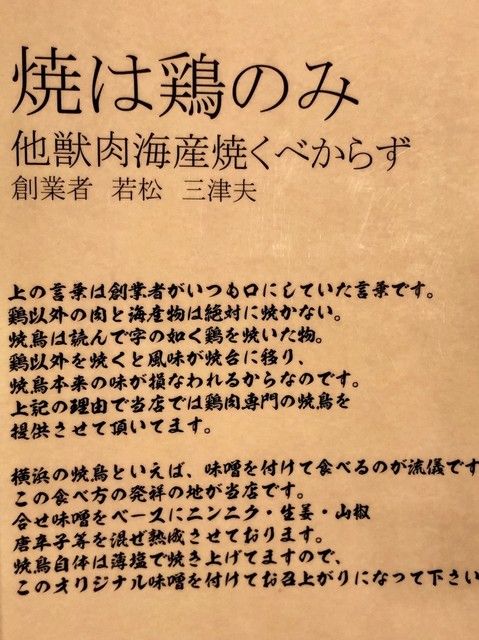 焼は鶏のみ
他獣肉海産焼くべからず
創業者 若松 三津夫
上の言葉は創業者がいつも口にしていた言葉です。
鶏以外の肉と海産物は絶対に焼かない。
焼鳥は読んで字の如く鶏を焼いた物。
鶏以外を焼くと風味が焼台に移り、
焼鳥本来の味が損なわれるからなのです。
上記の理由で当店では鶏肉専門の焼鳥を
提供させて頂いてます。
横浜の焼鳥といえば、味噌を付けて食べるのが流儀です
この食べ方の発祥の地が当店です。
合せ味噌をベースにニンニク・生姜・山椒
唐辛子等を混ぜ熟成させております。
焼鳥自体は薄塩で焼き上げてますので、
このオリジナル味噌を付けてお召上がりになって下さい